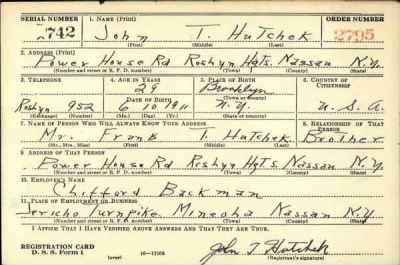 SERIAL NUMBER 1. NAME (Print) ORDER NUMBER
742 John T. Hutchek 2795
(First) (Middle) (Last)
2. ADDRESS (Print)
Power House Rd Roslyn Hgts. Nassau N.Y.
(Number and street or R. F. D. number) (Town) (County) (State)
3. TELEPHONE 4. AGE IN YEARS 5. PLACE OF BIRTH 6. COUNTRY OF CITIZENSHIP
29 Brooklyn
(Town or county)
DATE OF BIRTH
Roslyn 952 6 10 1911 N.Y. U.S.A.
(Exchange) (Number) (Mo.) (Day) (Yr.) (State or country)
7. NAME OF PERSON WHO WILL ALWAYS KNOW YOUR ADDRESS 8. RELATIONSHIP OF THAT PERSON
Mr. Frank T. Hutchek Brother
(Mr., Mrs., Miss) (First) (Middle) (Last)
9. ADDRESS OF THAT PERSON
Power House Rd Roslyn Hgts Nassau N.Y.
(Number and street or R. F. D. number) (Town) (County) (State)
10. EMPLOYER'S NAME
Clifford Backman
11. PLACE OF EMPLOYMENT OR BUSINESS
Jericho Turnpike Mineola Nassau N.Y.
(Number and street or R. F. D. number) (Town) (County) (State)
I AFFIRM THAT I HAVE VERIFIED ABOVE ANSWERS AND THAT THEY ARE TRUE.
REGISTRATION CARD
D. S. S. Form 1 (over) John T Hutchek
(Registrant's signature)